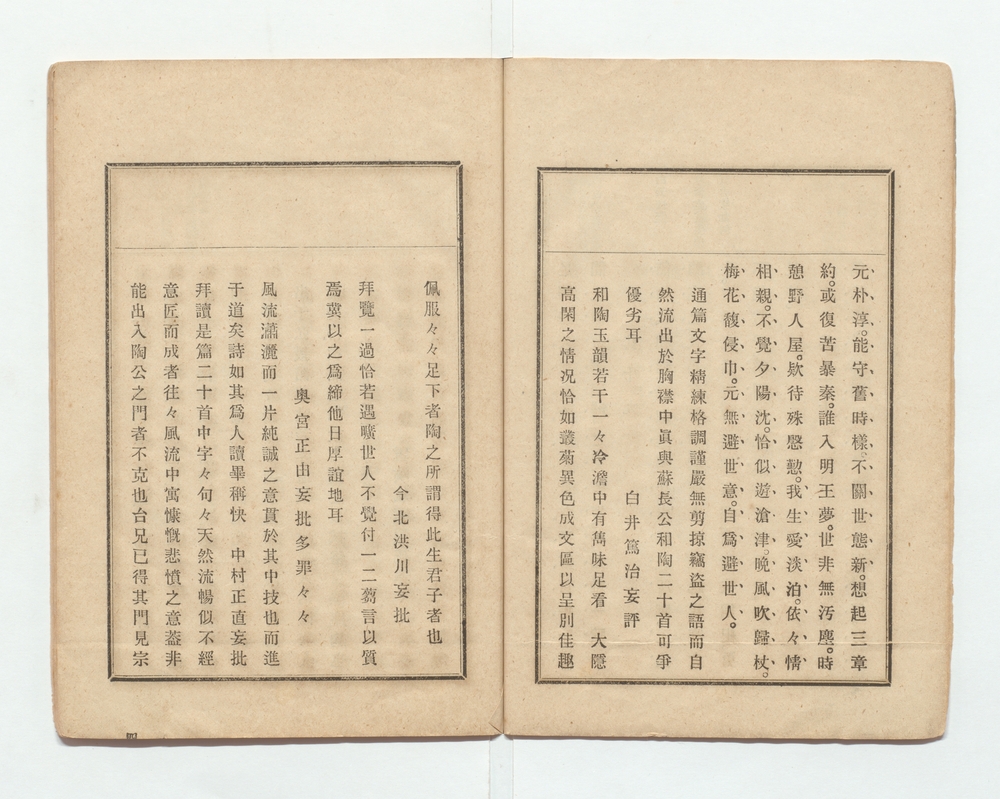 元朴淳。能守舊時樣。不關世態新。想起三章
約。或復苦暴秦。誰入明王夢。世非無汚塵。時
憩野人屋。欵待殊慇懃。我生愛淡泊。依々情
相親。不覺夕陽沈。恰似遊滄津。晚風吹歸杖。
梅花馥侵巾。元無避世意。自爲避世人。
通篇文字精練格調謹嚴無剪掠竊盜之語而自
然流出於胸襟中眞與蘇長公和陶二十首可爭
優劣耳　白井篤治妄評
和陶玉韻若干一々冷澹中有雋味足看　大隱
高閑之情況恰如叢菊異色成文區以呈別佳趣
佩服々々足下者陶之所謂得此生君子者也
今北洪川妄批
拜覽一過恰若遇曠世人不覺付一二蒭言以質
焉冀以之爲締他日厚誼地耳
奧宮正由妄批多罪々々
風流瀟灑而一片純誠之意貫於其中技也而進
于道矣詩如其爲人讀畢稱快　中村正直妄批
拜讀是篇二十首中字々句々天然流暢似不經
意匠而成者往々風流中寓慷慨悲憤之意蓋非
能出入陶公之門者不克也台兄已得其門見宗
四